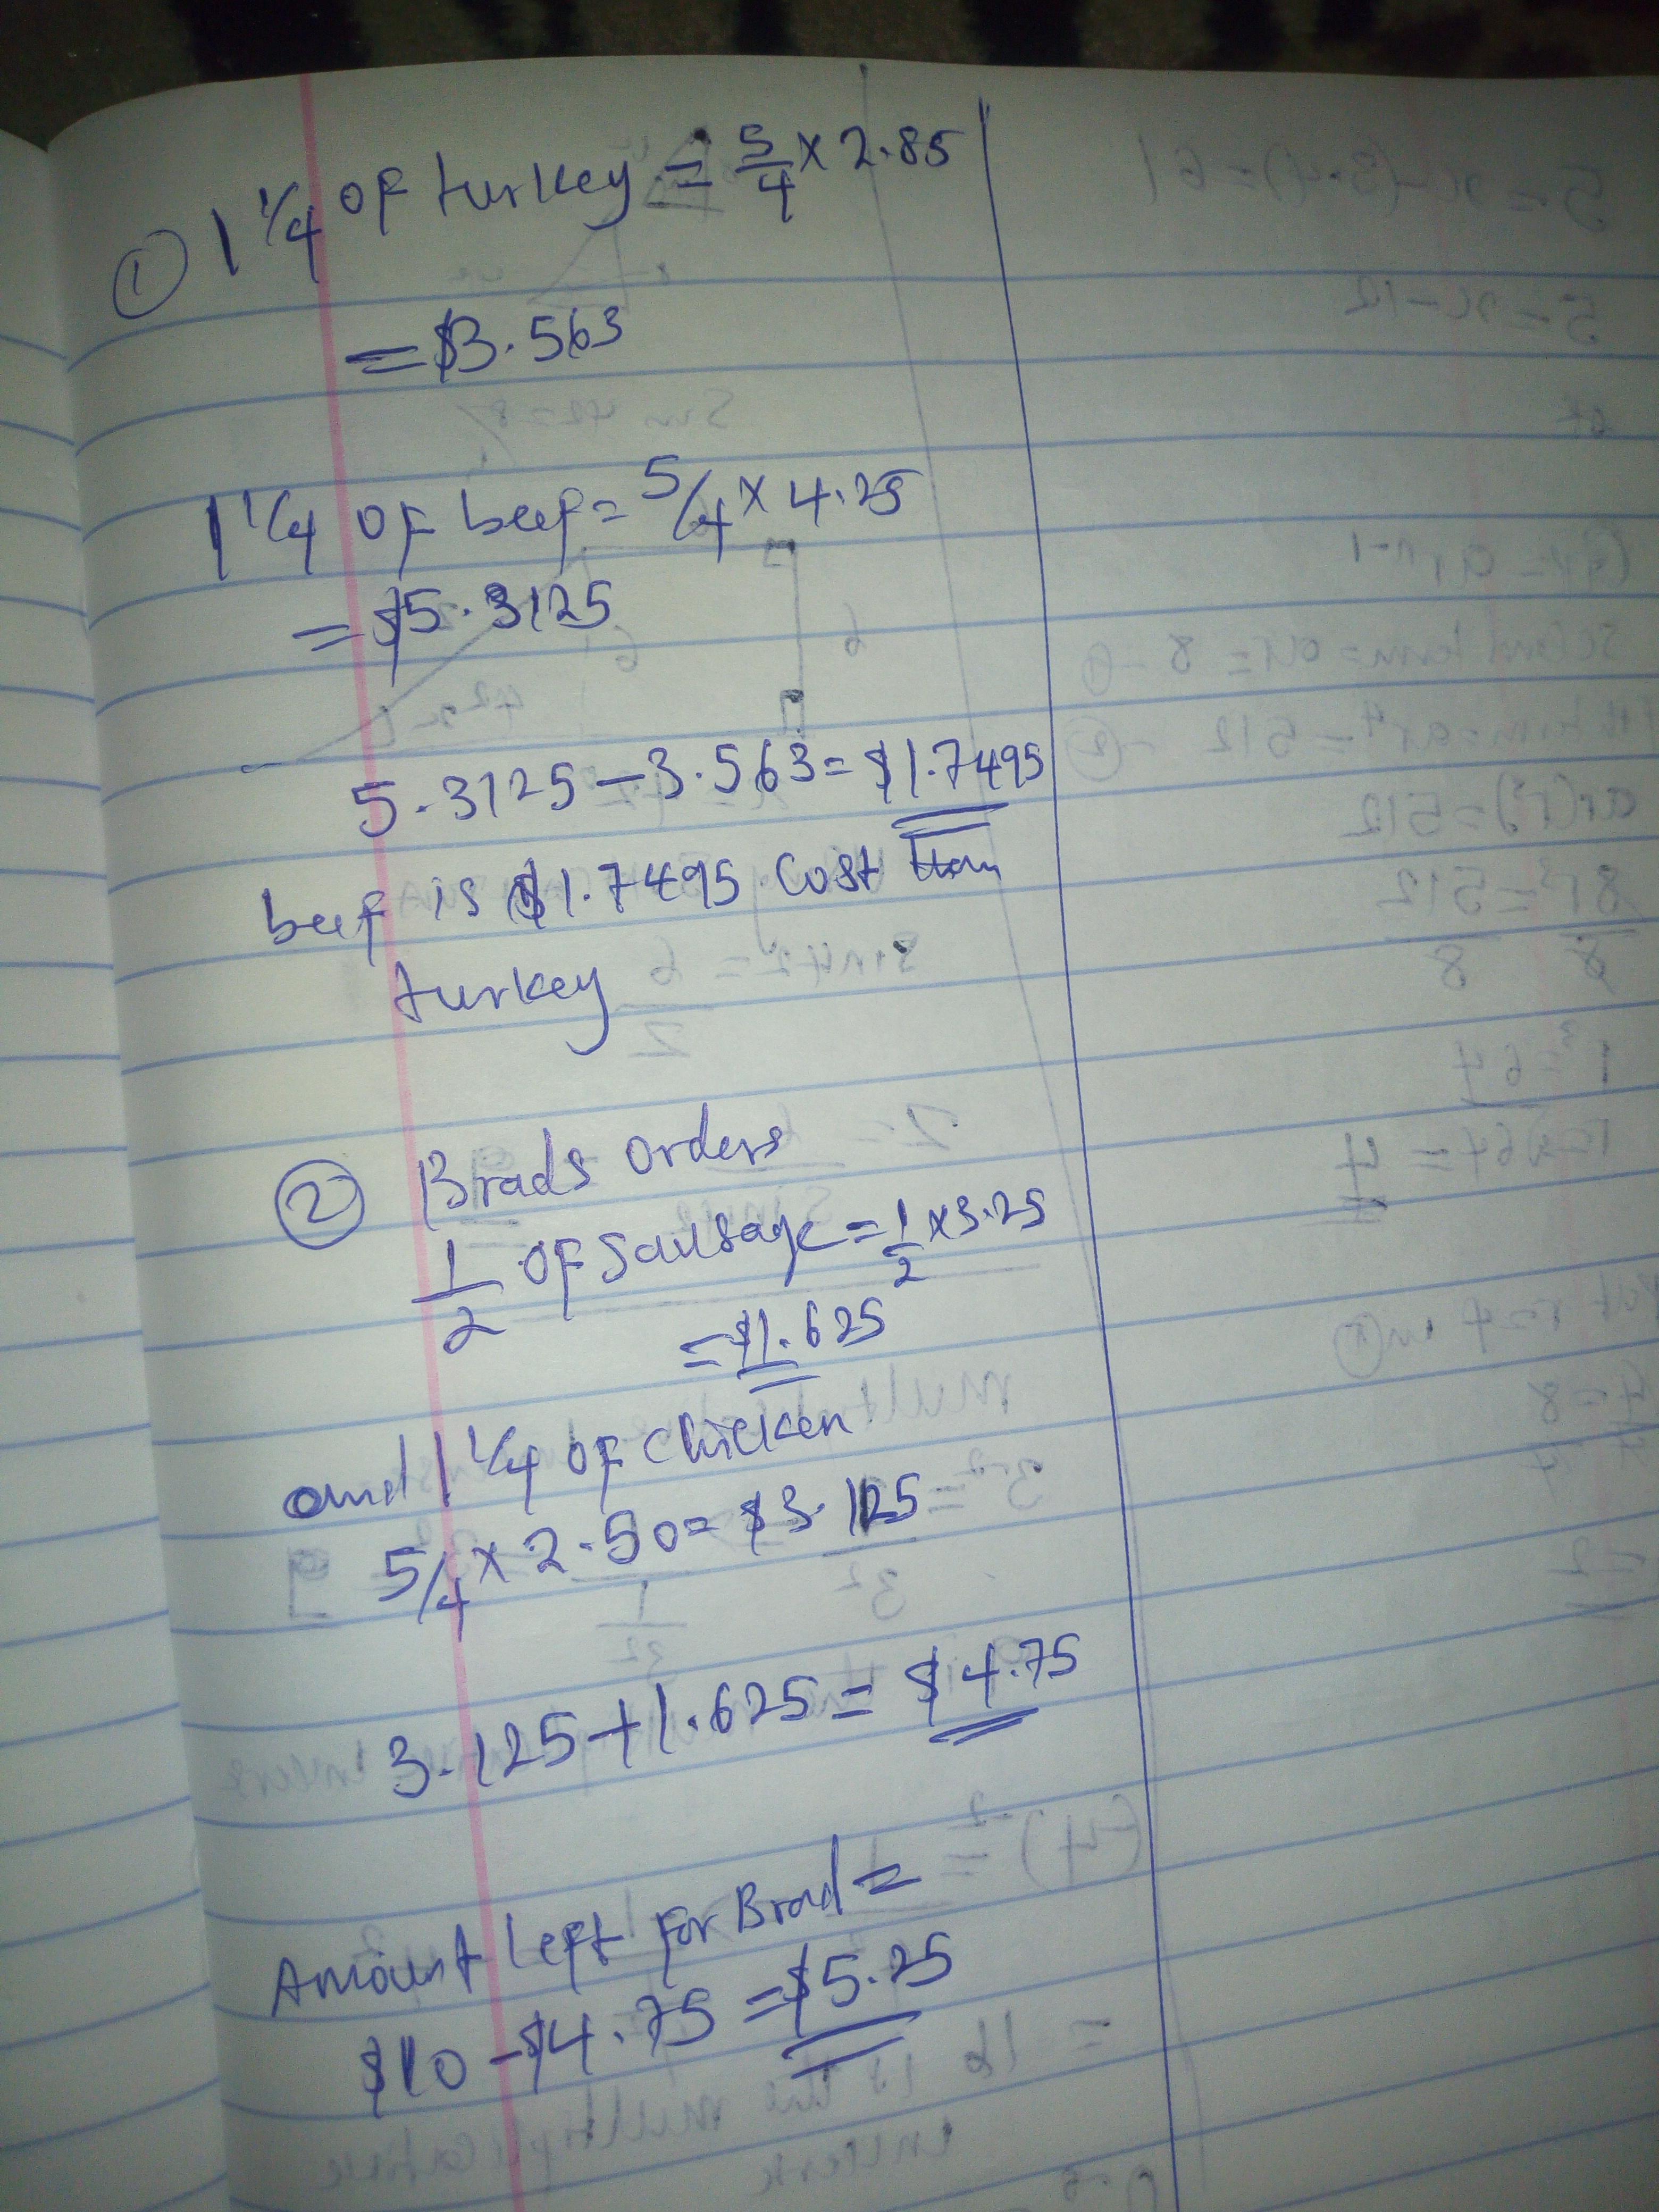 ① 1 1/4 of turkey = 5/4 x 2.85
= $3.563
1 1/4 of beef = 5/4 x 4.25
= $5.3125
5.3125 - 3.563 = $1.7495
beef is $1.7495 cost than
turkey
② Brads orders
1/2 of Sausage = 1/2 x 3.25
= $1.625
and 1 1/4 of chicken
5/4 x 2.50 = $3.125
3.125 + 1.625 = $4.75
Amount left for Brad =
$10 - $4.75 = $5.25